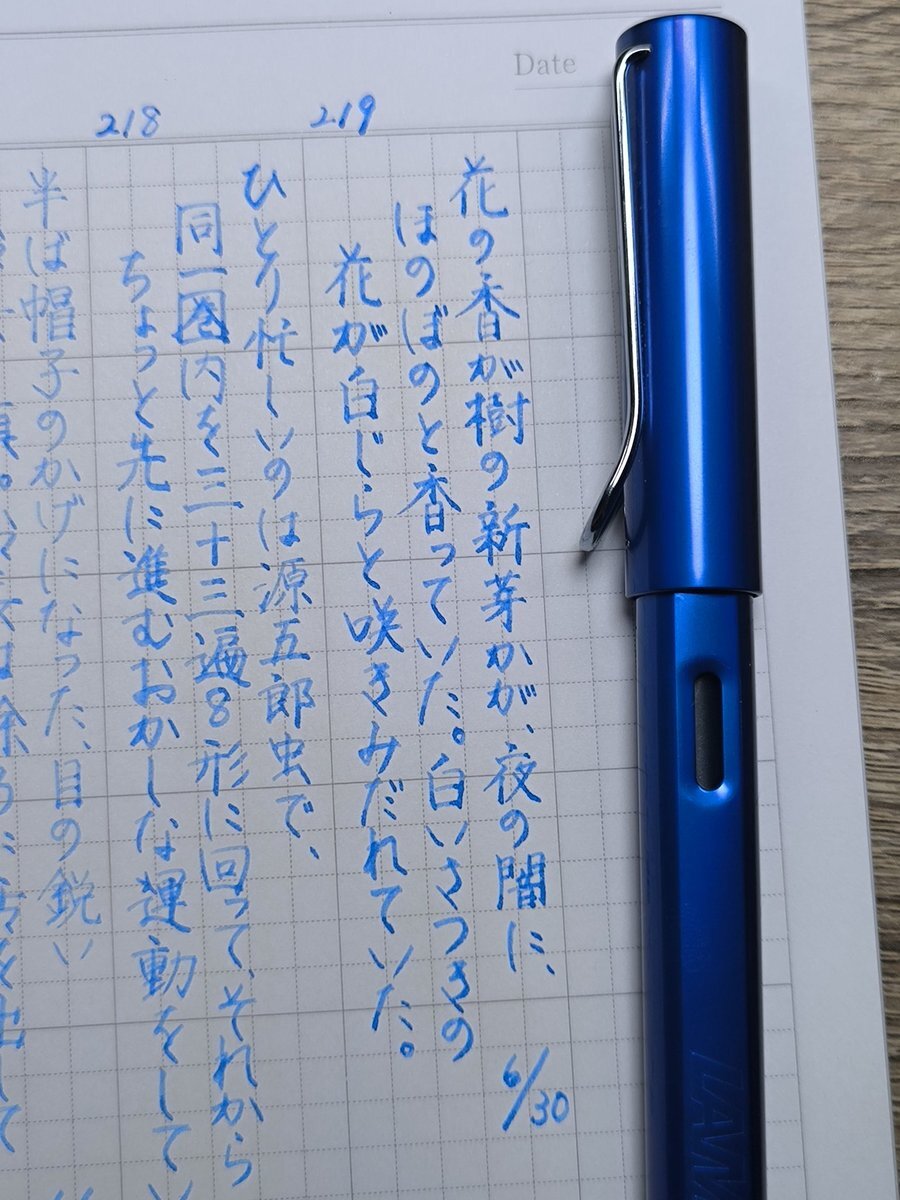 Date
218
219
花の香が樹の新芽かが、夜の闇に、
ほのぼのと香っていた。白いさつきの
花が白じらと咲きみだれていた。
6/30
ひとり忙しいのは源五郎虫で、
同一圏内を三十三遍8形に回って、それから
ちょっと先に進むおかしな運動をしてい
半ば帽子のかげになった、目の鋭い
LAMY